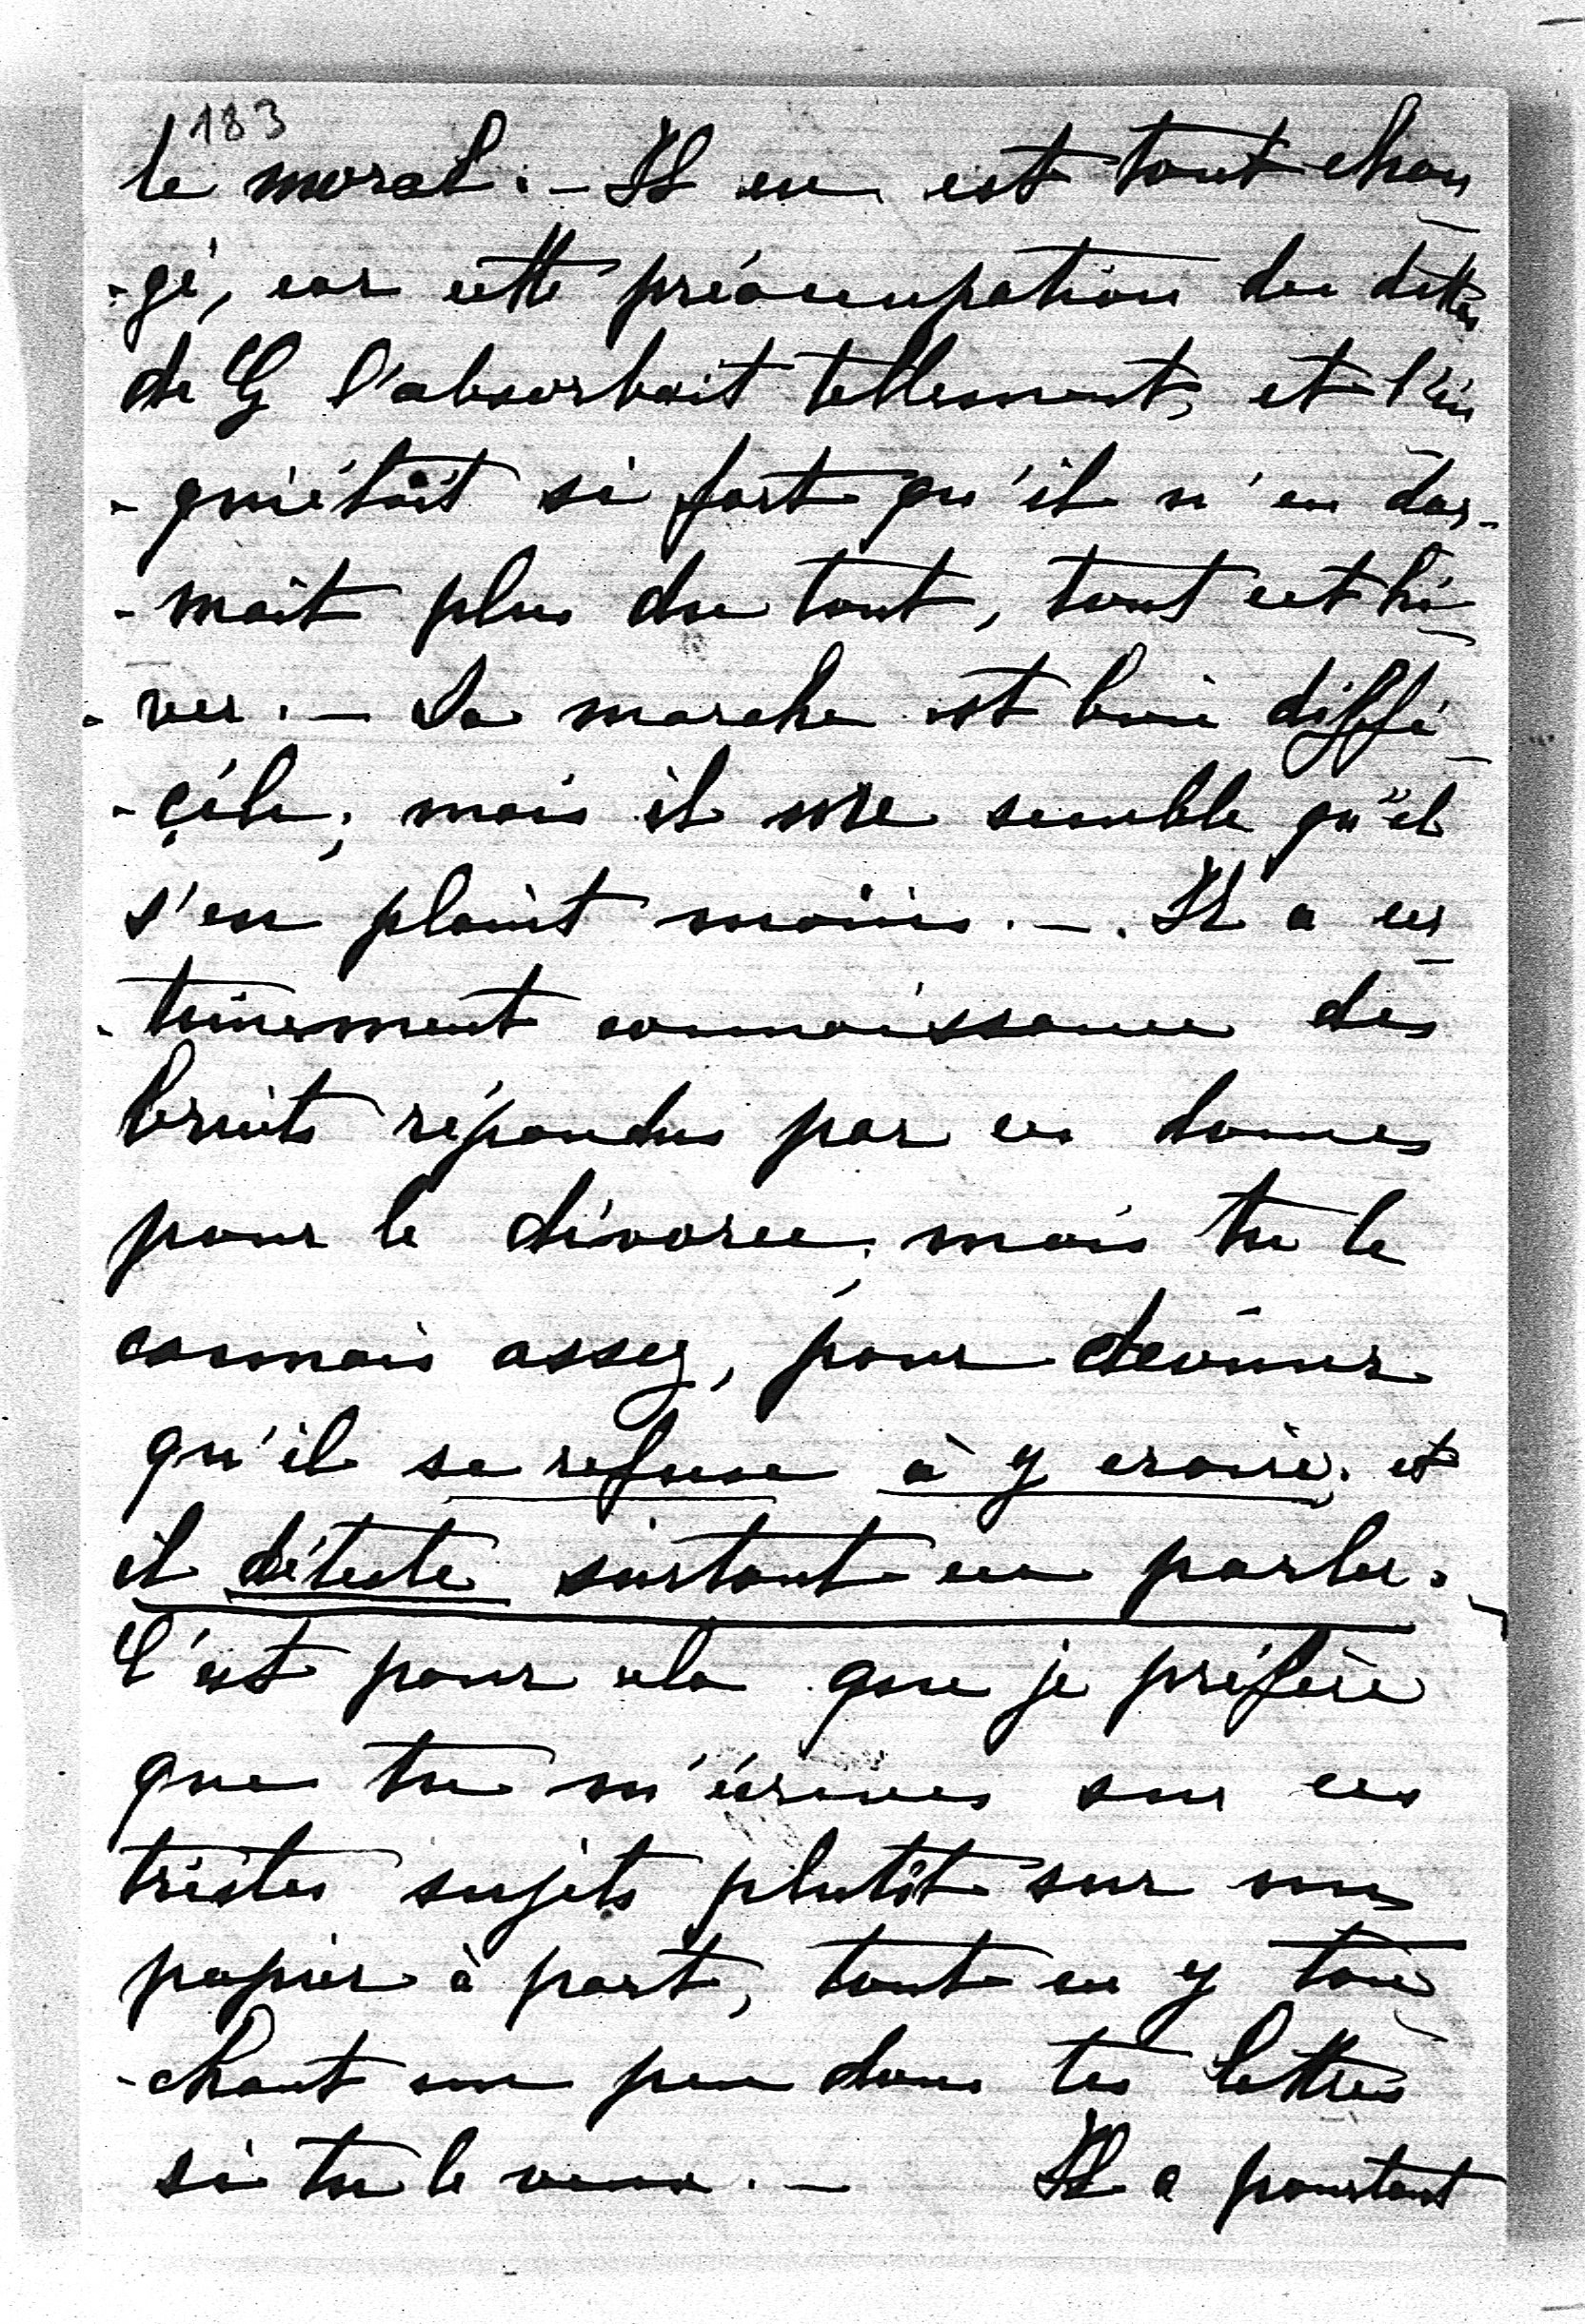 183
le moral. – Il en est tout chan
-gé, car cette préoccupation des dettes
de G l'absorbait tellement, et l'in
-quiétait si fort qu'il n'en dor-
-mait plus du tout, tout cet hi-
-ver. – La marche est bien diffi-
-cile; mais il me semble qu'il
s'en plaint moins. – . Il a cer
-tainement connaissance des
bruits répandus par ces dames
pour le divorce; mais tu le
connais assez, pour deviner
qu'il se refuse à y croire; et
il déteste surtout en parler. –
C'est pour cela que je préfère
que tu m'écrives sur ces
tristes sujets plutôt sur un
papier à part, tout en y tou
-chant un peu dans tes lettres
si tu le veux. – Il a pourtant